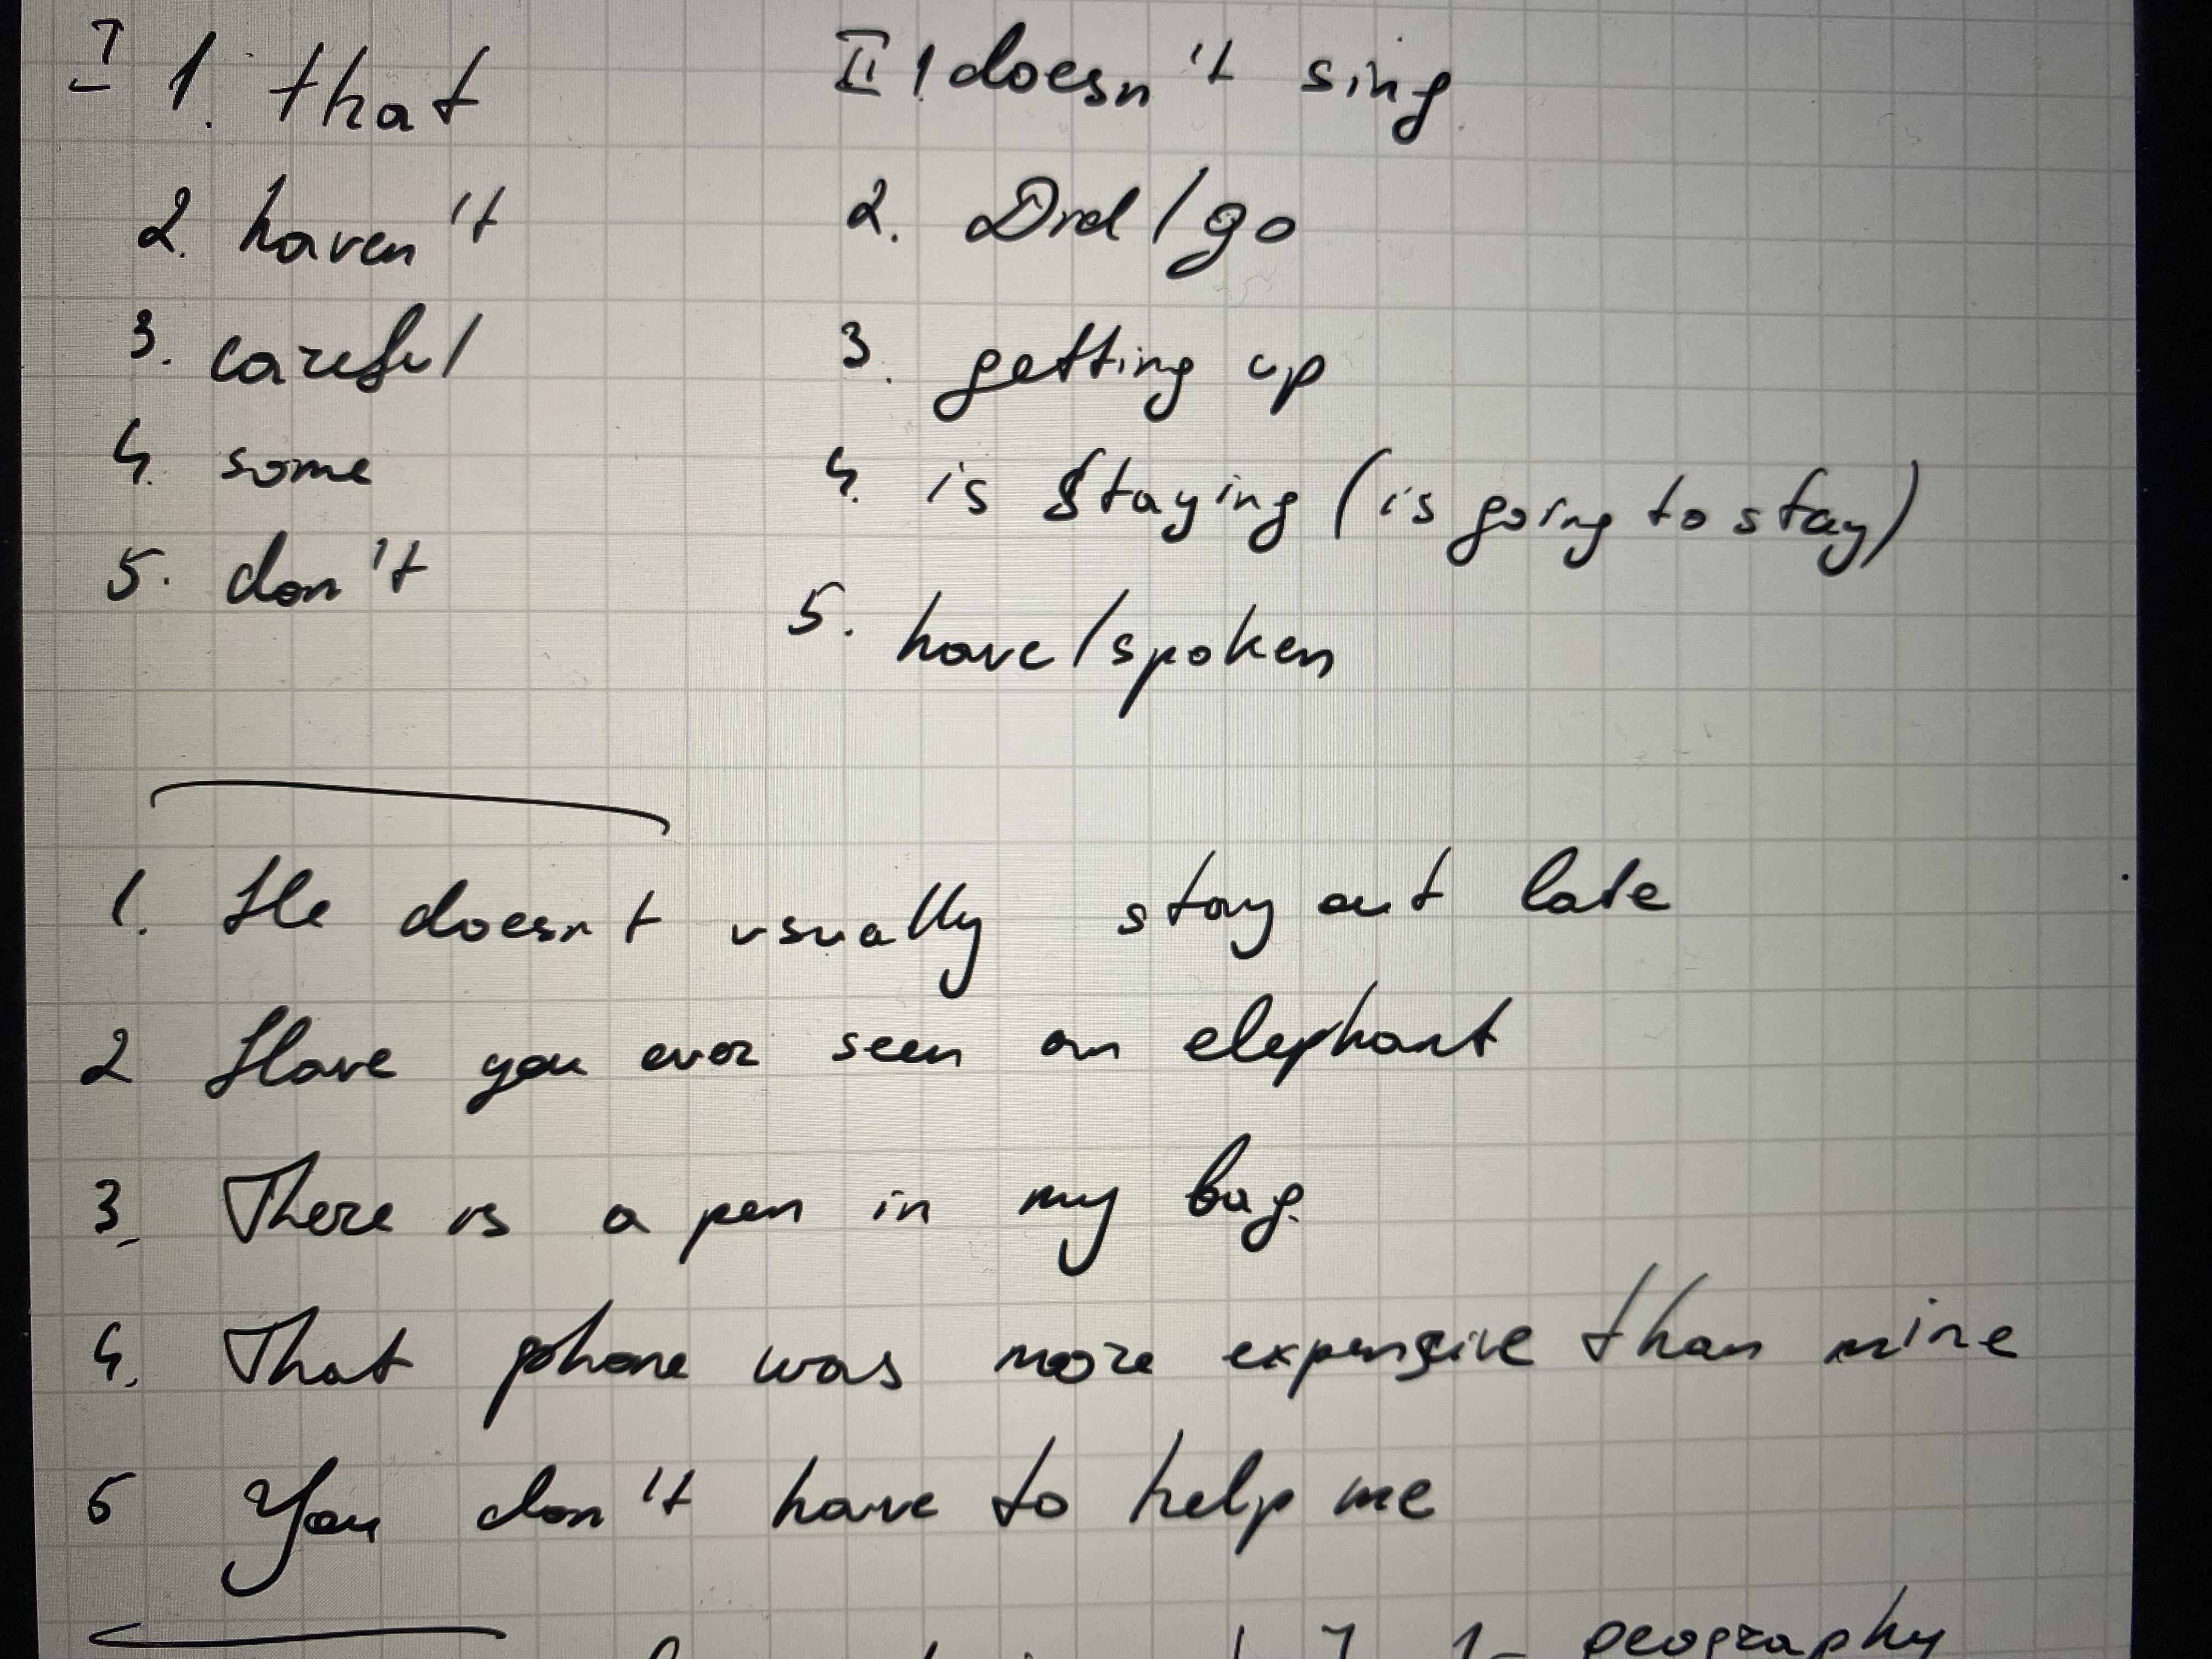 I 1. that
2. haven't
3. careful
4. some
5. don't
II 1 doesn't sing
2. Did / go
3. getting up
4. is staying (is going to stay)
5. have / spoken
1. He doesn't usually stay out late
2 Have you ever seen an elephant
3. There is a pen in my bag.
4. That phone was more expensive than mine
5 You don't have to help me
1- geography